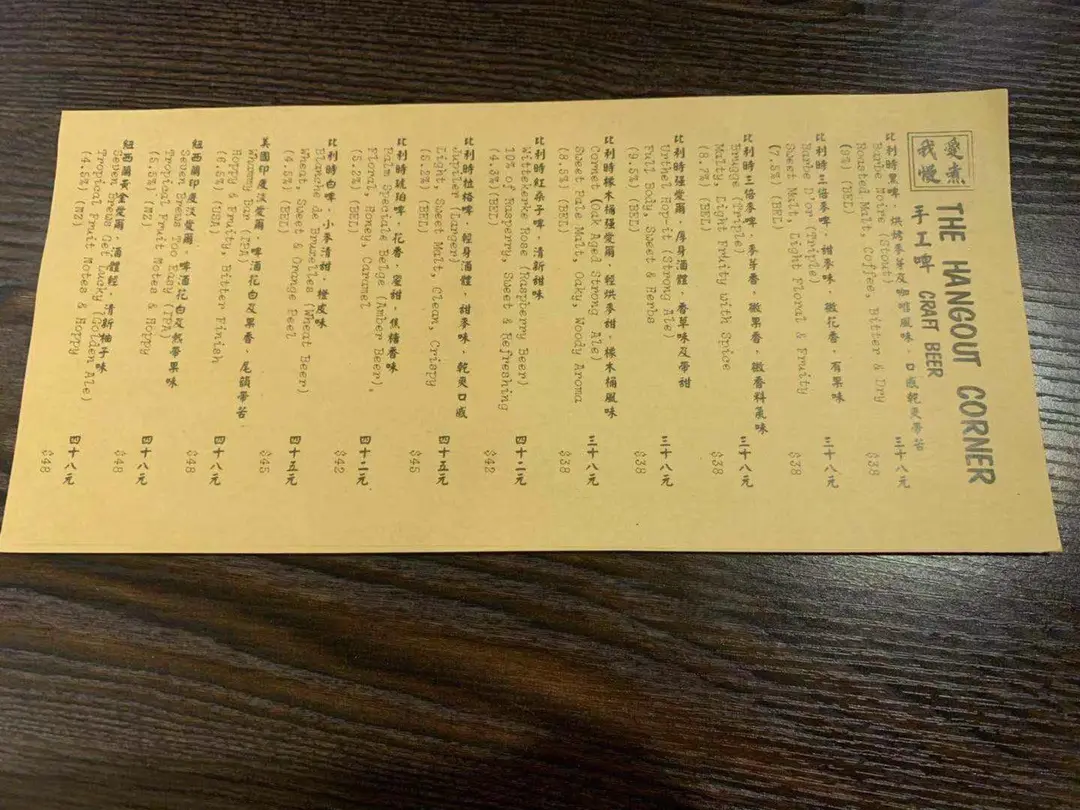 愛煮
我慢
THE HANGOUT CORNER
手工啤 CRAFT BEER
比利時黑啤，烘烤麥芽及咖啡風味，口感乾爽帶苦 三十八元
Barbe Noire (Stout) $38
Roasted Malt, Coffee, Bitter & Dry
(9%) (BEL)
比利時三倍麥啤，甜麥味，微花香，有果味 三十八元
Barbe D'or (Triple) $38
Sweet Malt, Light Floral & Fruity
(7.5%) (BEL)
比利時三倍麥啤，麥芽香，微果香，微香料氣味 三十八元
Brugge (Triple) $38
Malty, Light Fruity with Spice
(8.7%) (BEL)
比利時强愛爾，厚身酒體，香草味及帶甜 三十八元
Urthel Hop-it (Strong Ale) $38
Full Body, Sweet & Herbs
(9.5%) (BEL)
比利時橡木桶强愛爾，輕烘麥甜，橡木桶風味 三十八元
Cornet (Oak Aged Strong Ale) $38
Sweet Pale Malt, Oaky, Woody Aroma
(8.5%) (BEL)
比利時紅桑子啤，清新甜味 四十二元
Wittekerke Rose (Raspberry Beer) $42
10% of Rasperry, Sweet & Refreshing
(4.3%)(BEL)
比利時拉格啤，輕身酒體，甜麥味，乾爽口感 四十五元
Jupiler (Larger) $45
Light, Sweet Malt, Clean, Crispy
(5.2%) (BEL)
比利時琥珀啤，花香，蜜甜，焦糖香味 四十二元
Palm Speciale Belge (Amber Beer), $42
Floral, Honey, Caramel
(5.2%) (BEL)
比利時白啤，小麥清甜，橙皮味 四十五元
Blanche de Bruxelles (Wheat Beer) $45
Wheat, Sweet & Orange Peel
(4.5%) (BEL)
美國印度淡愛爾，啤酒花白及果香，尾韻帶苦 四十八元
Whammy Bar (IPA) $48
Hoppy & Fruity, Bitter Finish
(6.5%) (USA)
紐西蘭印度淡愛爾，啤酒花白及熱帶果味 四十八元
Seven Brews Too Easy (IPA) $48
Tropical Fruit Notes & Hoppy
(5.5%) (NZ)
紐西蘭黃金愛爾，酒體輕，清新柚子味 四十八元
Seven Brews Get Lucky (Golden Ale) $48
Tropical Fruit Notes & Hoppy
(4.5%) (NZ)